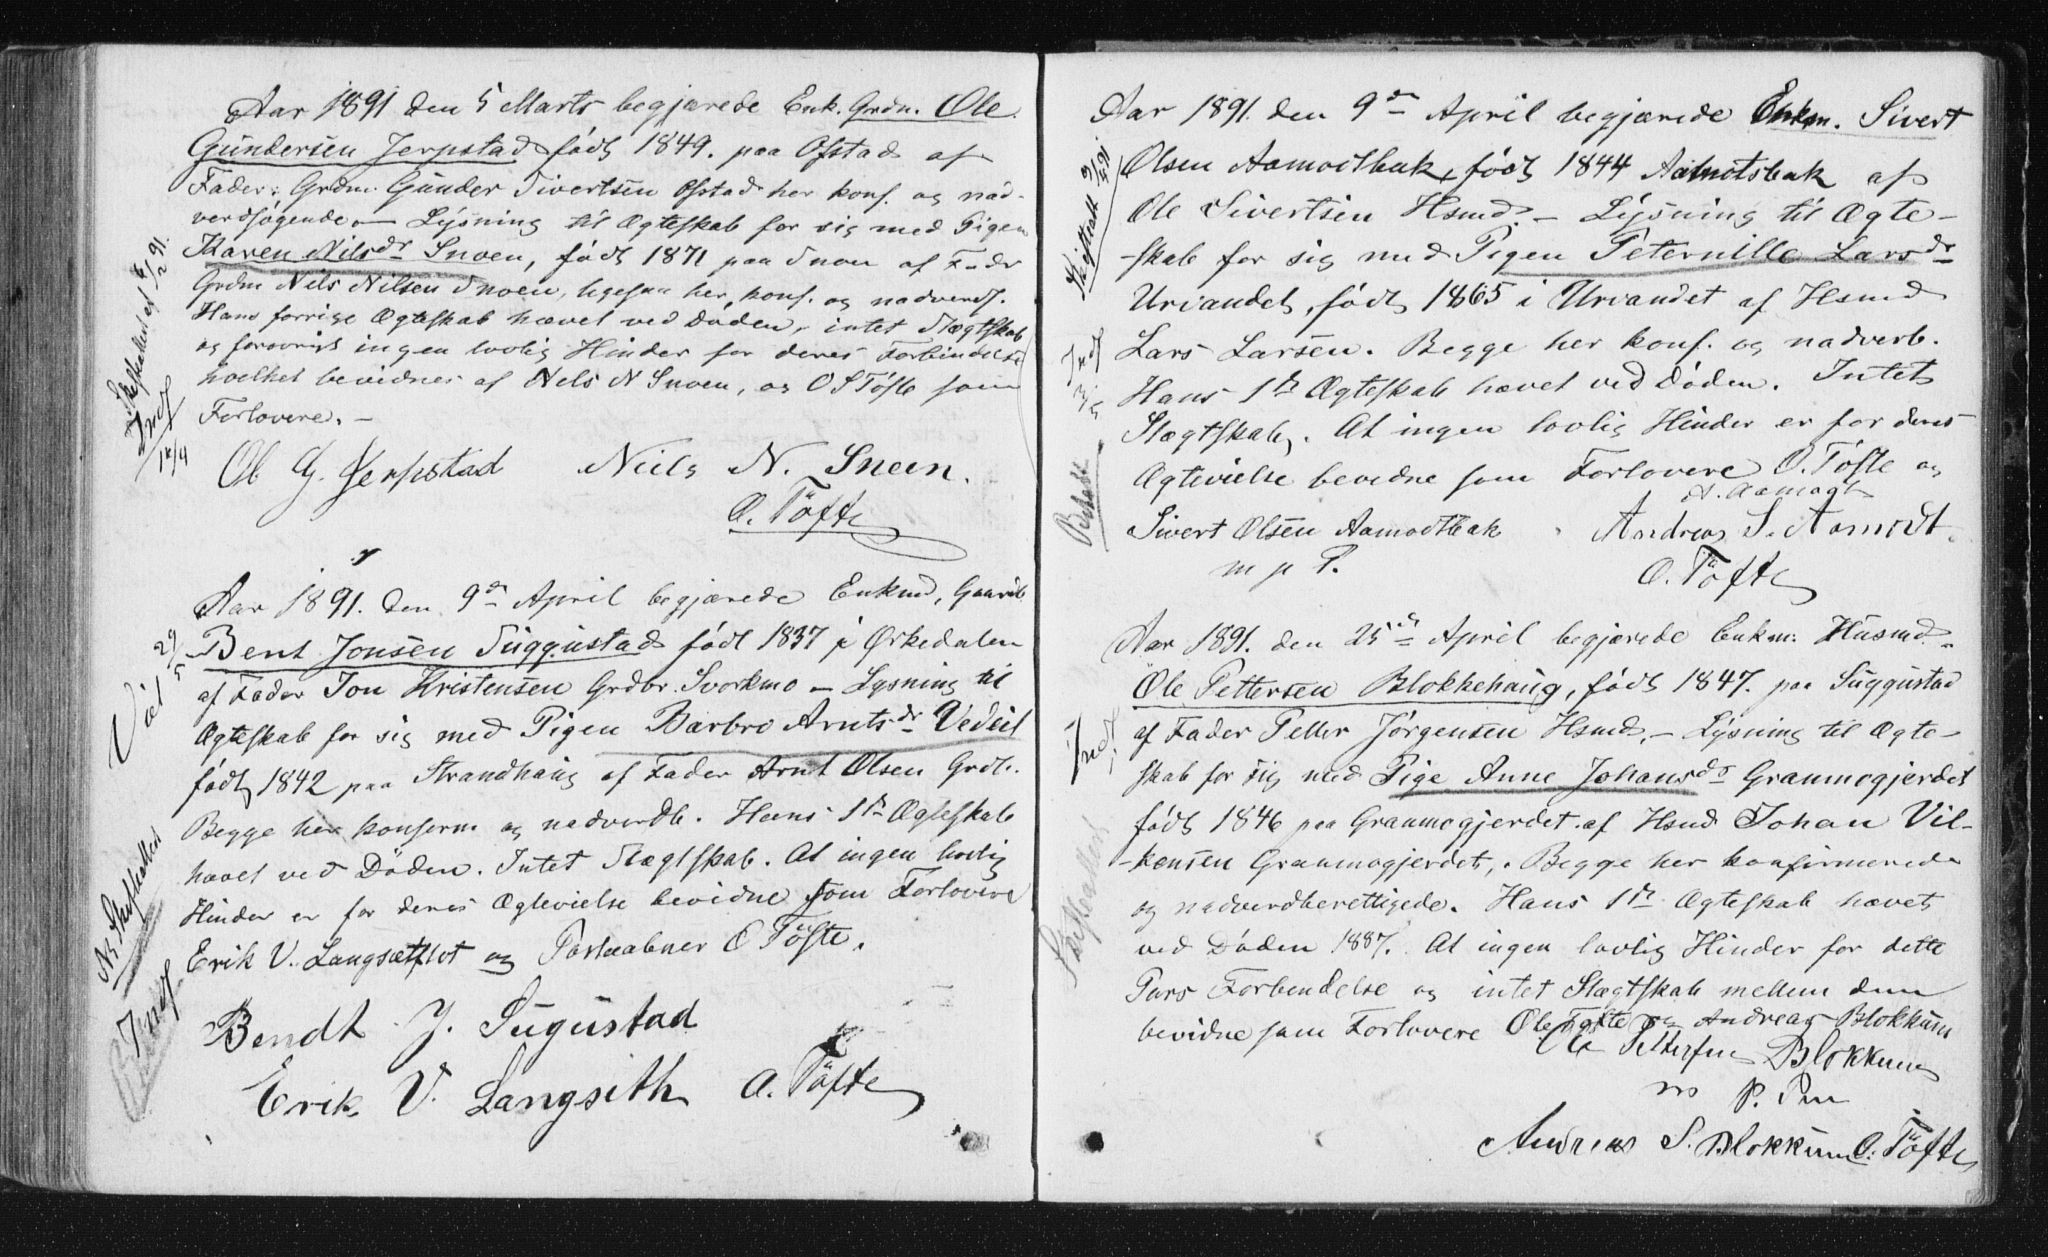 Aar 1891 den 5 Marts begjærede Enk. Grdm. Ole
Gundersen Jerpstad født 1849. paa Ofstad af
Fader: Grdm. Gunder Sivertsen Ofstad her konf. og nad-
verdsøgende — Lysning til Ægteskab for sig med Pigen
Karen Nilsdr Snoen, født 1871 paa Snoen af Fadr
Grdm Nils Nilsen Snoen, ligesaa her, konf. og nadverds.
Hans forrige Ægteskab hævet ved Døden, intet Slægtskab
og forøvrigt ingen lovlig Hinder for deres Forbindelse
hvilket bevidnes af Nils N Snoen, og O S Tøfte som
Forlovere. —
Skifteatt af 6/2 91.
Indf
12/4
Ol G. Jerpstad Niels N. Sneen.
O. Töfte
Aar 1891. den 9de April begjærede Enkmd, Gaardb
Bent Jonsen Suggustad født 1837 i Ørkedalen
af Fader Jon Kristensen Grdbr. Svorkmo — Lysning til
Ægteskab for sig med Pigen Barbro Arntsdr Vedeil
født 1842 paa Strandhaug af Fader Arnt Olsen Grdb.
Begge her konferm og nadverdb. Hans 1te Ægteskab
hævet ved Døden. Intet Slægtskab. At ingen lovlig
Hinder er for deres Ægtevielse bevidne som Forlovere
Erik V. Langsætflot og Postaabner O Tøfte.
Viet 29/5
Skifteattest
Indf
Bendt J. Sugustad
Erik V. Langsith O. Töfte
Aar 1891. den 9de April begjærede Enkm. Sivert
Olsen Aamodtbak, født 1844 Aamotsbak af
Ole Sivertsen Hsmd. — Lysning til Ægte-
-skab for sig med Pigen Peternille Larsdr
Urvandet, født 1865 i Urvandet af Hsmd
Lars Larsen. Begge her konf. og nadverb.
Hans 1te Ægteskab hævet ved Døden. Intet
Slægtskab. At ingen lovlig Hinder er for deres
Ægtevielse bevidne som Forlovere O. Tøfte og
A. Aamodt
Skifteatt 9/5 91.
Indf 3/5
Sivert Olsen Aamodtbak Andreas S. Aamodt.
m p P. O. Töfte
Aar 1891. den 25de April begjærede Enkm. Husmd.
Ole Pettersen Blokkehaug, født 1847. paa Suggustad
af Fader Petter Jørgensen Hsmd, — Lysning til Ægte-
skab for sig med Pige Anne Johansdr Granmogjerdet
født 1846 paa Granmogjerdet af Hsmd Johan Vil-
-kensen Granmogjerdet,. Begge her konfirmerede
og nadverdberettigede. Hans 1te Ægteskab hævet
ved Døden 1887. At ingen lovlig Hinder for dette
Pars Forbendelse og intet Slægtskab mellem dem
bevidne som Forlovere Ole Tøfte og Andreas Blokkum
Indf
Skifteattest
Ole Pettersen Blokkum
m P. Pen
Andreas S. Blokkum O. Töfte